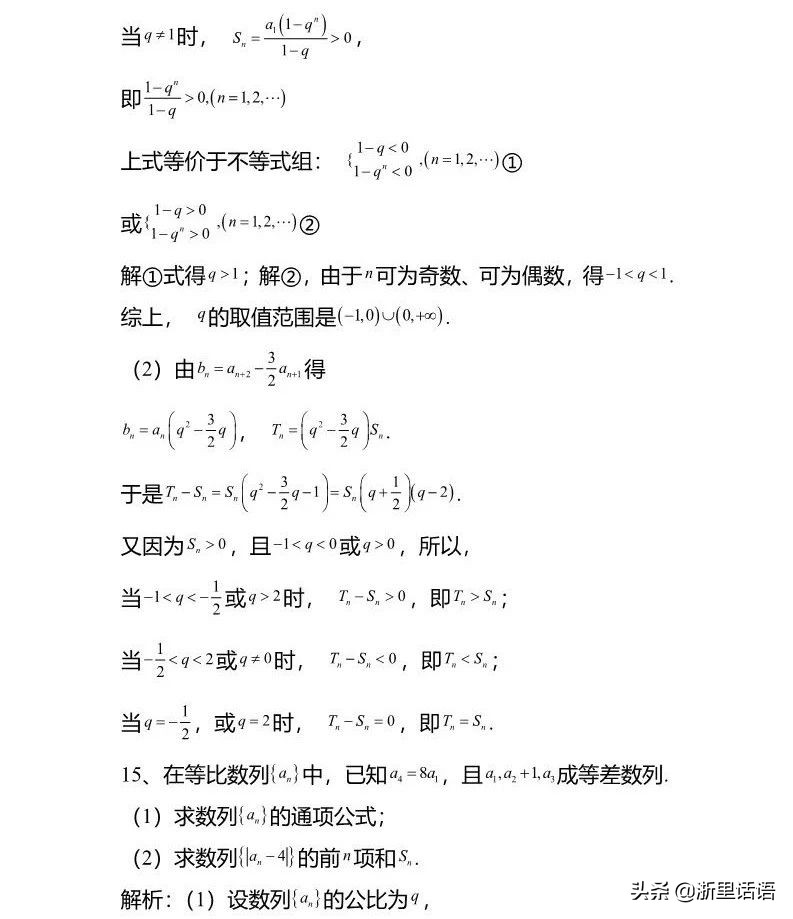 当 q ≠ 1 时， Sₙ = a₁(1−qⁿ)/(1−q) > 0，
即 (1−qⁿ)/(1−q) > 0,(n=1,2,⋯)
上式等价于不等式组： { 1−q<0 1−qⁿ<0 ,(n=1,2,⋯)①
或{ 1−q>0 1−qⁿ>0 ,(n=1,2,⋯)②
解①式得 q>1；解②，由于 n 可为奇数、可为偶数，得 −1<q<1.
综上， q 的取值范围是(−1,0)∪(0,+∞).
（2）由 bₙ = aₙ₊₂ − 3/2 aₙ₊₁ 得
bₙ = aₙ(q² − 3/2 q)， Tₙ = (q² − 3/2 q)Sₙ.
于是 Tₙ − Sₙ = Sₙ(q² − 3/2 q − 1) = Sₙ(q + 1/2)(q − 2).
又因为 Sₙ > 0，且 −1<q<0 或 q>0，所以，
当 −1<q<−1/2 或 q>2 时， Tₙ − Sₙ > 0，即 Tₙ > Sₙ；
当 −1/2<q<2 或 q≠0 时， Tₙ − Sₙ < 0，即 Tₙ < Sₙ；
当 q=−1/2，或 q=2 时， Tₙ − Sₙ = 0，即 Tₙ = Sₙ.
15、在等比数列{aₙ}中，已知 a₄ = 8a₁，且 a₁,a₂+1,a₃ 成等差数列.
（1）求数列{aₙ}的通项公式；
（2）求数列{|aₙ−4|}的前 n 项和 Sₙ.
解析：（1）设数列{aₙ}的公比为 q，
头条 @浙里话语